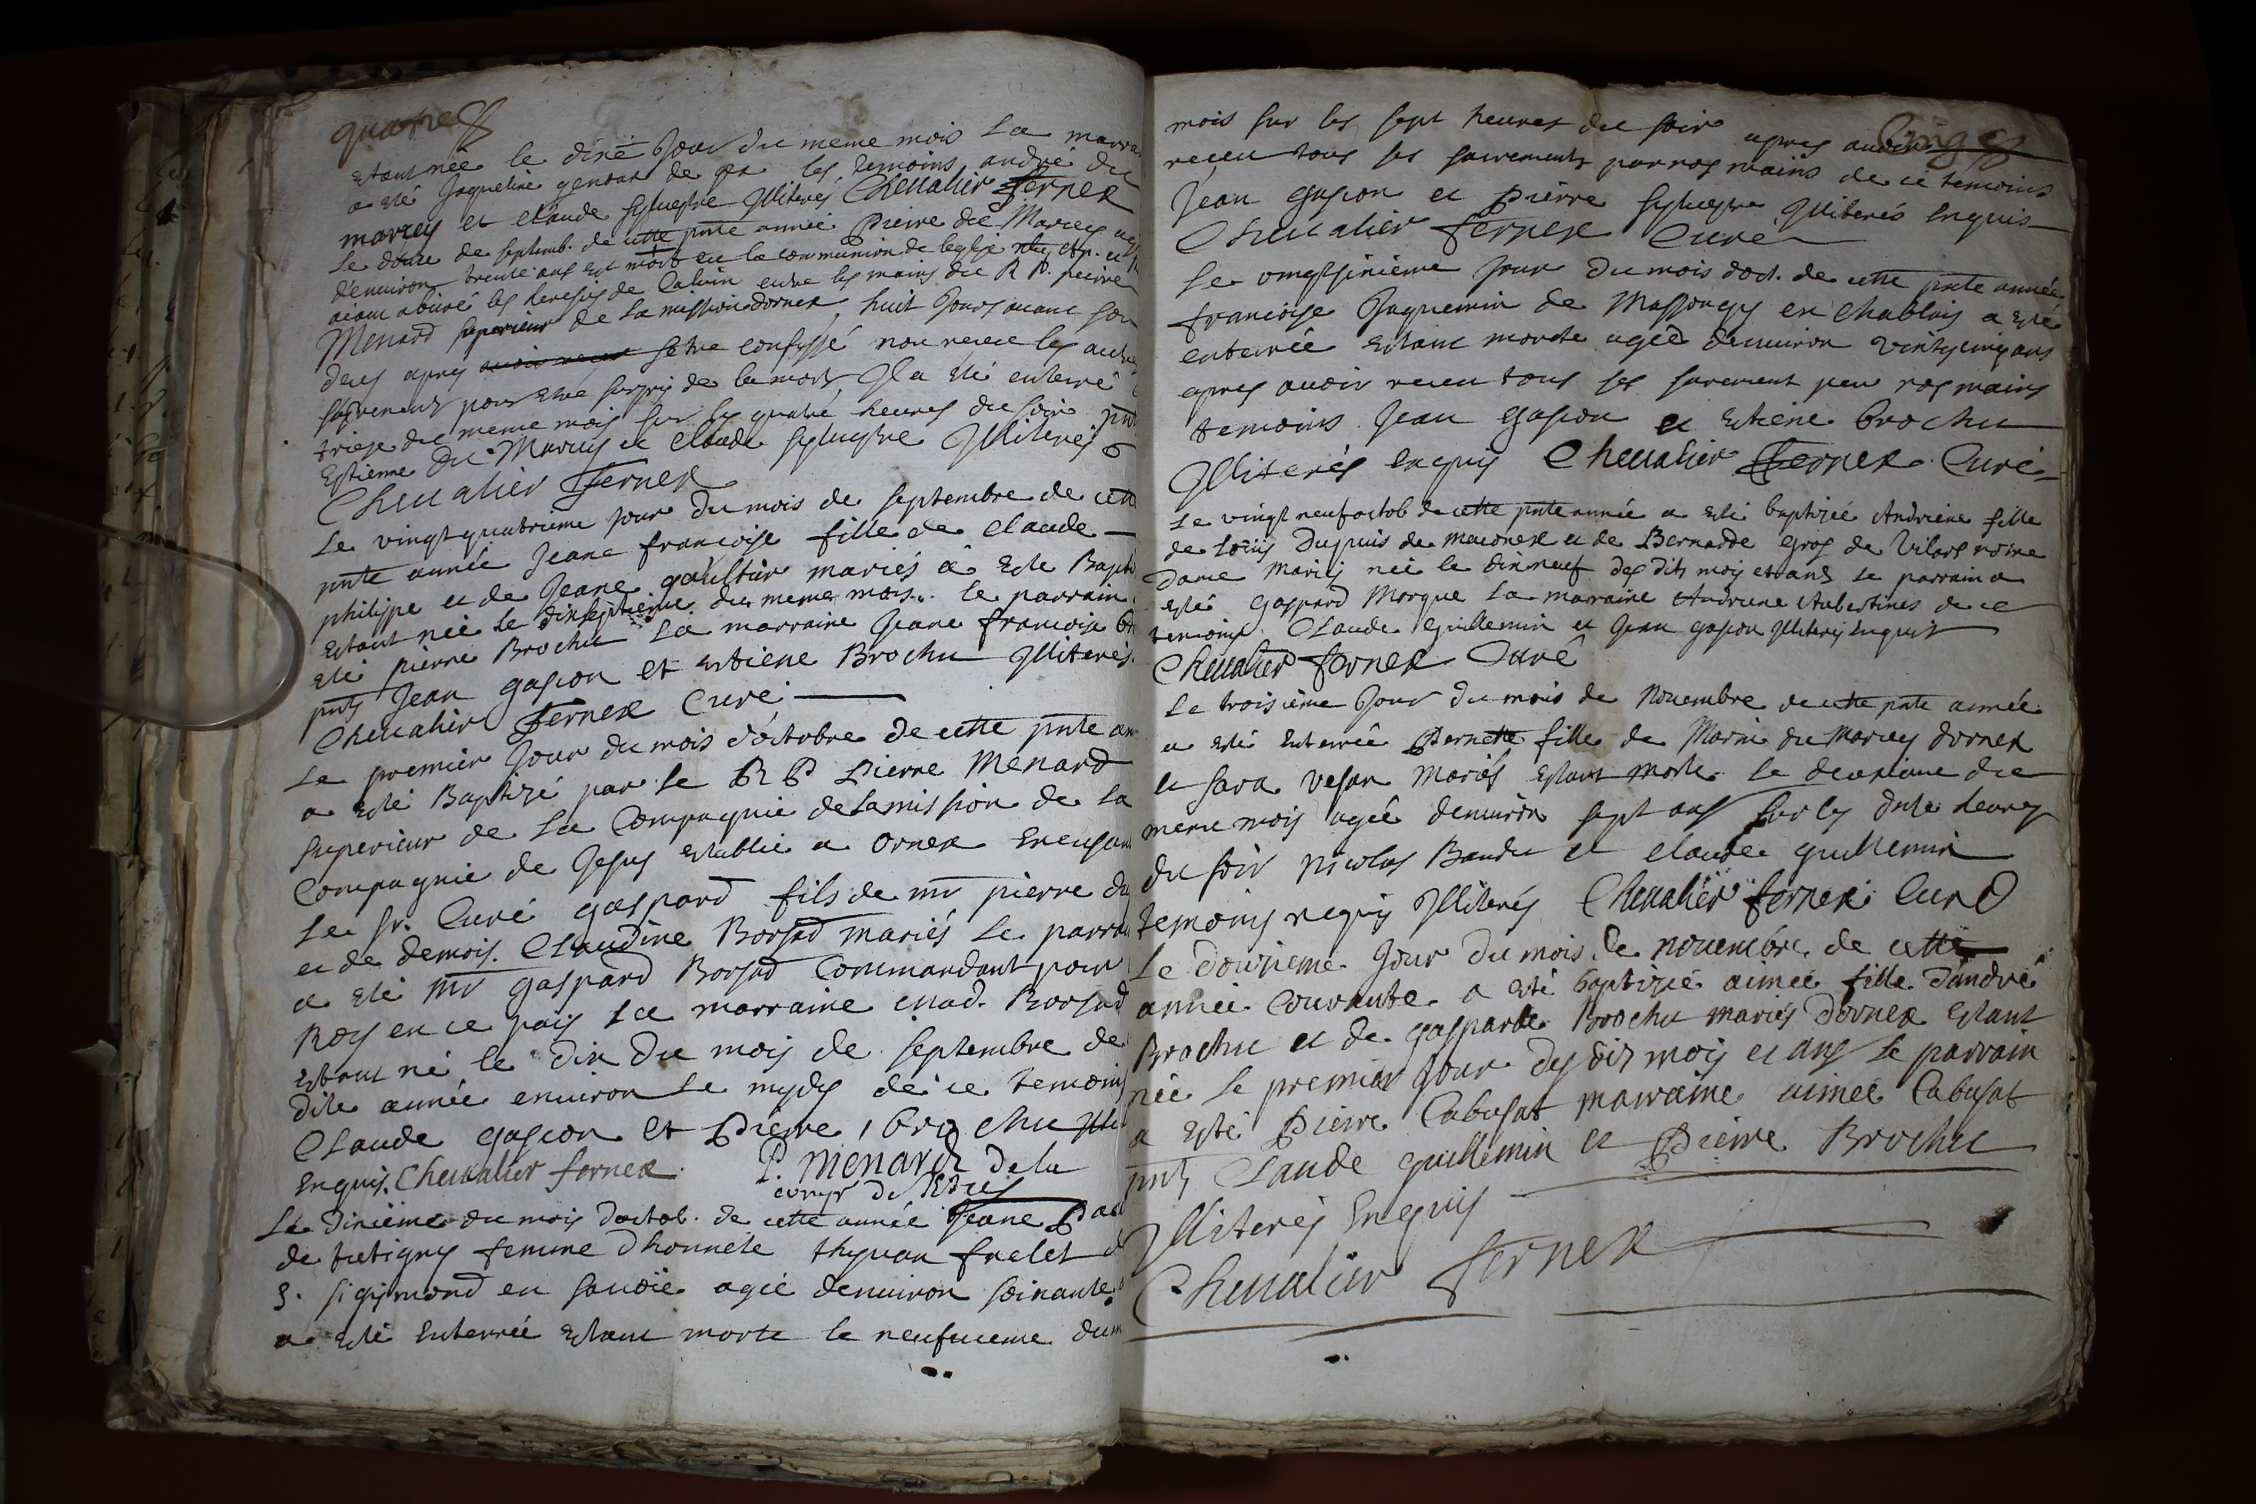 quatre
estant née le dixe Jour du meme mois La marra
a esté Jaqueline gendar de gex les temoins andré du
marcey et claude syluestre Illiterés Chevalier Fernex
Le douze de septemb. de cette pnte année Pierre du Marcey agé
d'environ trente ans est mort en la communion de leglise
aiant abiuré les heresies de Calvin entre les mains du R P. pierre
Menard superieur de la mission dornex huit Jours avant son
deces apres setre confessé non receu les autres
sacrements pour etre surpris de la mort Il a été enterré
treize du meme mois sur les quatre heures du soir pnts
Estienne Du Marcey et claude syluestre Illiterés
Chevalier Fernex
Le vingt quatrieme jour du mois de septembre de cette
pnte année Jeane francoise fille de claude
philippe et de Jeane gaultier mariés a este Bapti
estant née le dixseptieme du meme mois. le parrain
esté pierre Brochu La marraine Jeane francoise br
pnts Jean gascon et estiene Brochu Illiterés
Chevalier Fernex Curé
Le premier Jour du mois d'octobre de cette pnte an
a esté Baptizé par le R P Pierre Menard
superieur de la Compagnie de la mission de la
Compagnie de Jesus establie a Ornex
Le sr. Curé gaspard fils de mr pierre du
et de demois. Claudine Borsad mariés le parra
a été mr gaspard Borsad Commandant pour
Roy en ce pais La marraine mad. Borsad
estant né le dix du mois de septembre de
dite année environ le mydy de ce temoins
Claude gascon et Pierre brochu Illi
Enquis. Chevalier fernex. P. Menard de la
comp. de Jesus
Le dixieme du mois doctob. de cette année Jeane
de fretigny femme dhonnete frelet
S. sigismond en savoie agée denviron soixante
a esté Enterrée estant morte le neufuieme du m
mois sur les sept heures du soir apres avoir
receu tous ses sacrements par nos mains de ce temoins
Jean gascon et Pierre syluestre Illiterés Enquis
Chevalier Fernex Curé
Le vingtsixieme jour du mois doct. de cette pnte année
francoise Jaquemin de Massongy en Chablais a esté
enterrée estant morte agée denviron vintcinq ans
apres avoir receu tous ses sacrement par nos mains
temoins Jean gascon et estiene brochu
Illiterés enquis Chevalier Fernex Curé
Le vingt neuf octob de cette pnte année a esté baptizée Andriene fille
de Louis Dupuis de maconex et de Bernarde gros de Vilars notre
dame mariés née le dixneuf des dits mois et ans le parrain a
esté gaspard Morque La marraine Andriene Aubertines de ce
temoins Claude Guillemin et Jean gascon Illiterés Enquis
Chevalier Fernex Curé
Le troisième Jour du mois de Novembre de cette pnte année
a esté Enterrée Pernette fille de Marin du Marcey dornex
et sara vesan Mariés estant morte le deuxieme du
meme mois agée denviron sept ans sur les onze heures
du soir nicolas Baudu et claude guillemin
temoins requis Illiterés Chevalier fernex Curé
Le douzieme Jour du mois de novembre de cette
année Courante a esté baptizée aimée fille d'andré
Brochu et de gasparde Brochu mariés d'ornex estant
née le premier Jour desdits mois et ans le parrain
a esté Pierre Cabusat marraine aimée Cabusat
pnts Claude guillemin et Pierre Brochu
Illiterés Enquis
Chevalier Fernex